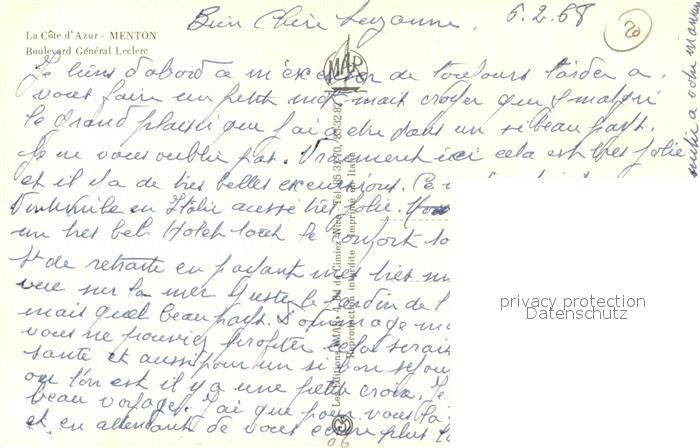 La Côte d'Azur - MENTON
Boulevard Général Leclerc
Bien Chère Suzanne. 6.2.68
20
MAR
Je tiens d'abord a m'excuser de toujours tarder a
vous faire un petit mot mais croyez que malgré
le grand plaisir que j'ai a etre dans un si beau pays.
Je ne vous oublie pas. Vraiment ici cela est tres jolie
et il y a de tres belles excursions. Ce
Vintimile en Italie aussi tres jolie.
un tres bel Hotel tout le confort
de retraite en partant mes tres
vue sur la mer Juste le jardin de l
mais quel beau pays. Dommage
vous ne pouviez profiter cela serait
santé et aussi pour un si bon sejour
ou l'on est il y a une petite croix. Je
beau voyage. J'ai que pour vous
et en attendant de vous ecrire plus
Les Editions "MAR" 4, Bd de Cimiez Nice - Tél. 85.31.70, 85.32.82
Reproduction interdite - Imprimé en Italie
06
privacy protection
Datenschutz